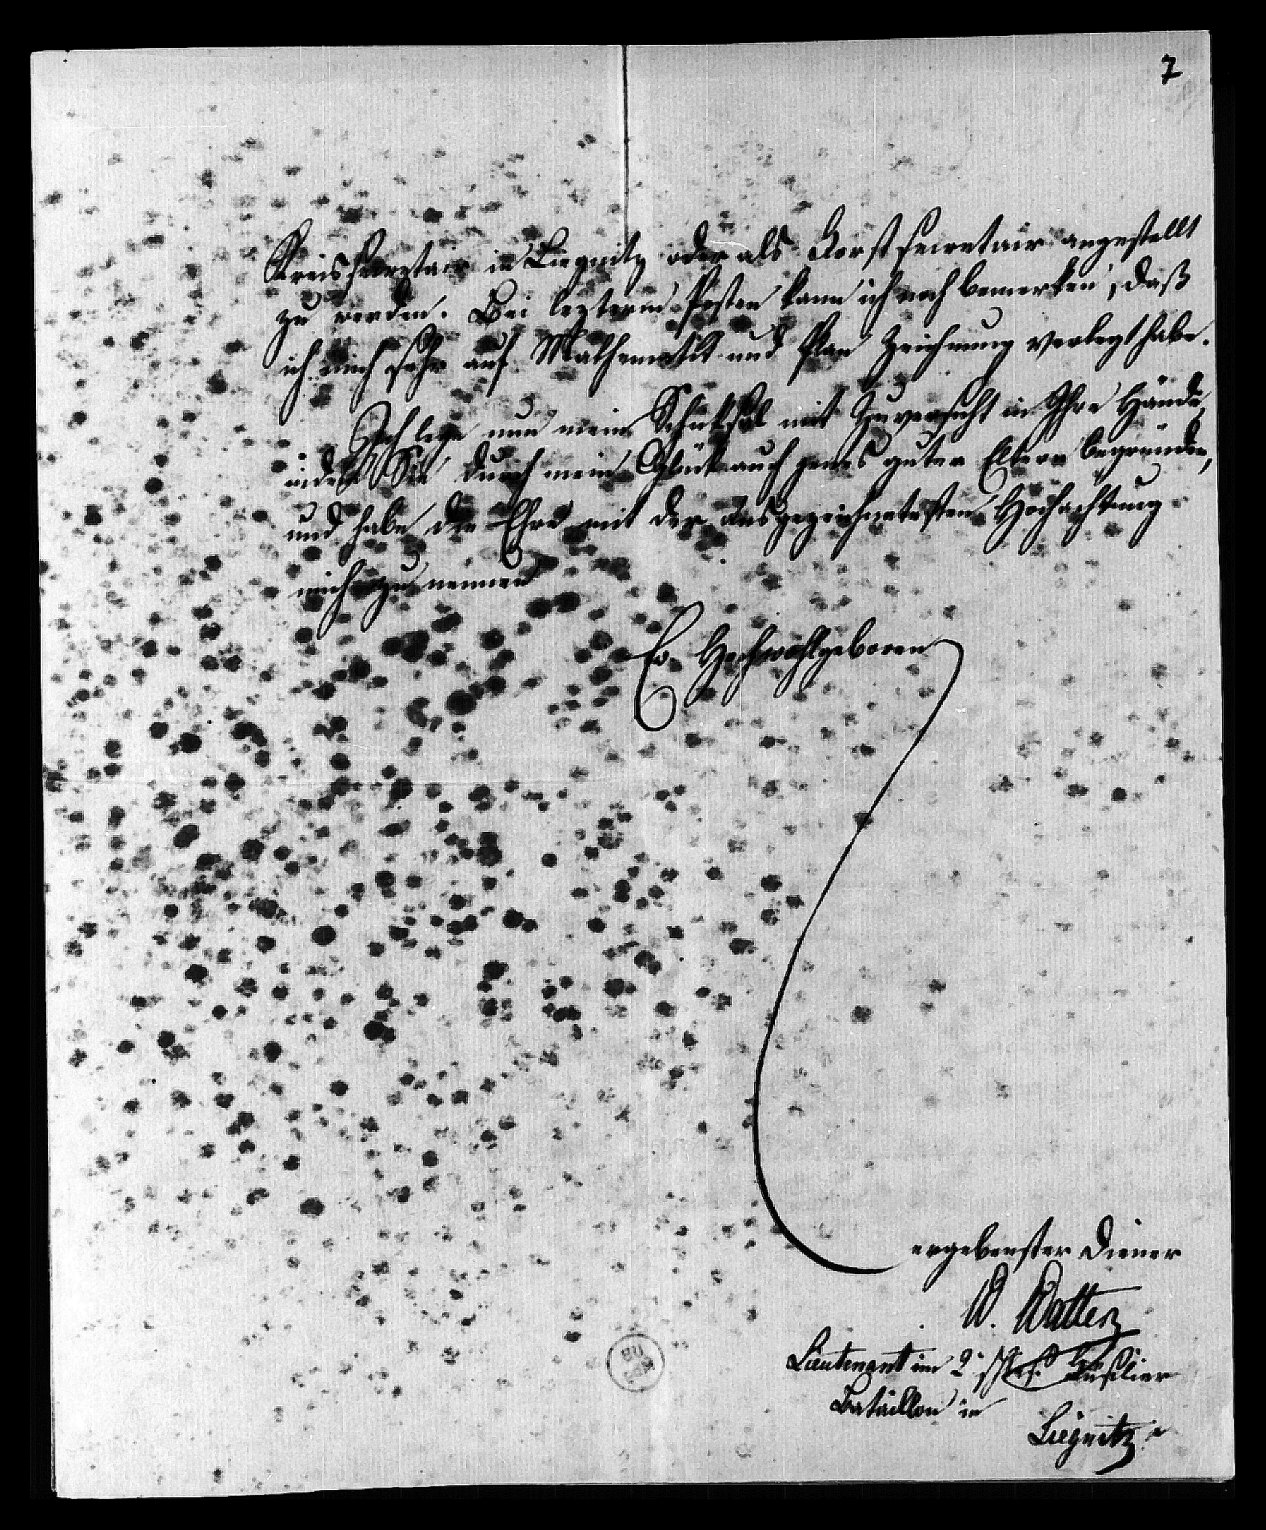 7
Kreissecretair in Liegnitz oder als Forstsecretair angestellt
zu werden. Bei lezterm Posten kann ich noch bemerken, daß
ich mich sehr auf Mathematik und Plan Zeichnung verlegt habe.
Ich lege nun mein Schiksal mit Zuversicht in Ihre Hände,
indem Sie durch mein Glük auch jenes guter Eltern begründen,
und habe die Ehre mit der ausgezeichnetesten Hochachtung
mich zu nennen
Ew Hochwohlgeboren
ergebenster Diener
W. Watter
Lieutenant im 2. Füsilier
Bataillon in
Liegnitz